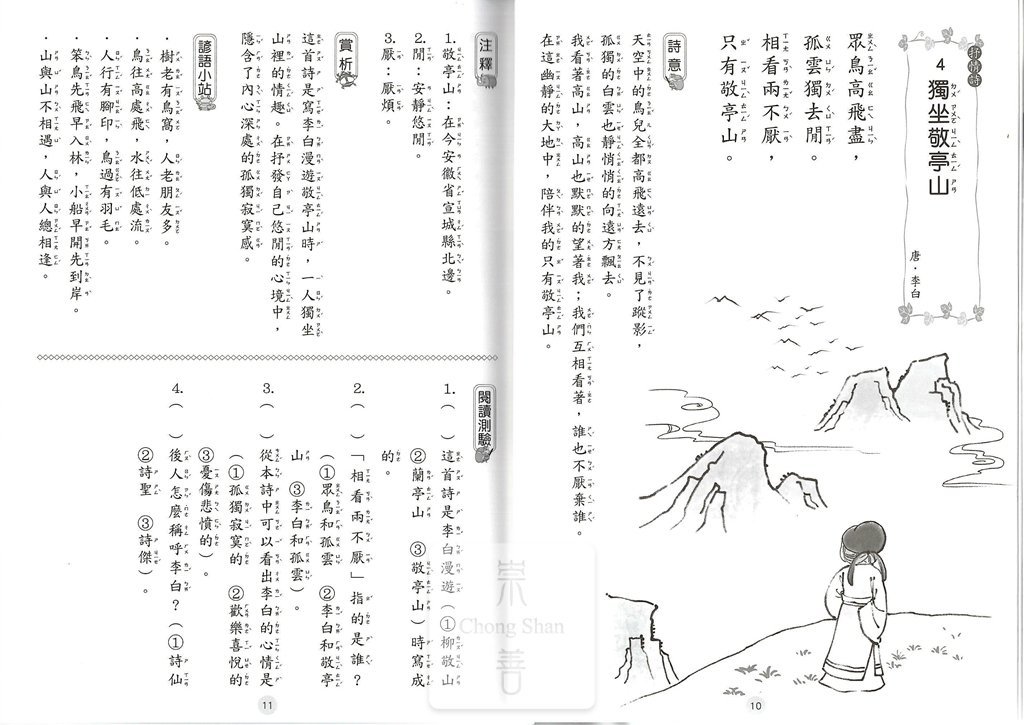 抒情詩
4 獨坐敬亭山
唐．李白
眾鳥高飛盡，
孤雲獨去閒。
相看兩不厭，
只有敬亭山。
詩意
天空中的鳥兒全都高飛遠去，不見了蹤影，
孤獨的白雲也靜悄悄的向遠方飄去。
我看著高山，高山也默默的望著我；我們互相看著，誰也不厭棄誰。
在這幽靜的大地中，陪伴我的只有敬亭山。
10
注釋
1.敬亭山：在今安徽省宣城縣北邊。
2.閒：安靜悠閒。
3.厭：厭煩。
賞析
這首詩是寫李白漫遊敬亭山時，一人獨坐
山裡的情趣。在抒發自己悠閒的心境中，
隱含了內心深處的孤獨寂寞感。
諺語小站
．樹老有鳥窩，人老朋友多。
．鳥往高處飛，水往低處流。
．人行有腳印，鳥過有羽毛。
．笨鳥先飛早入林，小船早開先到岸。
．山與山不相遇，人與人總相逢。
閱讀測驗
1.（ ）這首詩是李白漫遊（①柳敬山
②蘭亭山 ③敬亭山）時寫成
的。
2.（ ）「相看兩不厭」指的是誰？
（①眾鳥和孤雲 ②李白和敬亭
山 ③李白和孤雲）。
3.（ ）從本詩中可以看出李白的心情是
（①孤獨寂寞的 ②歡樂喜悅的
③憂傷悲憤的）。
4.（ ）後人怎麼稱呼李白？（①詩仙
②詩聖 ③詩傑）。
11
崇
Chong Shan
善